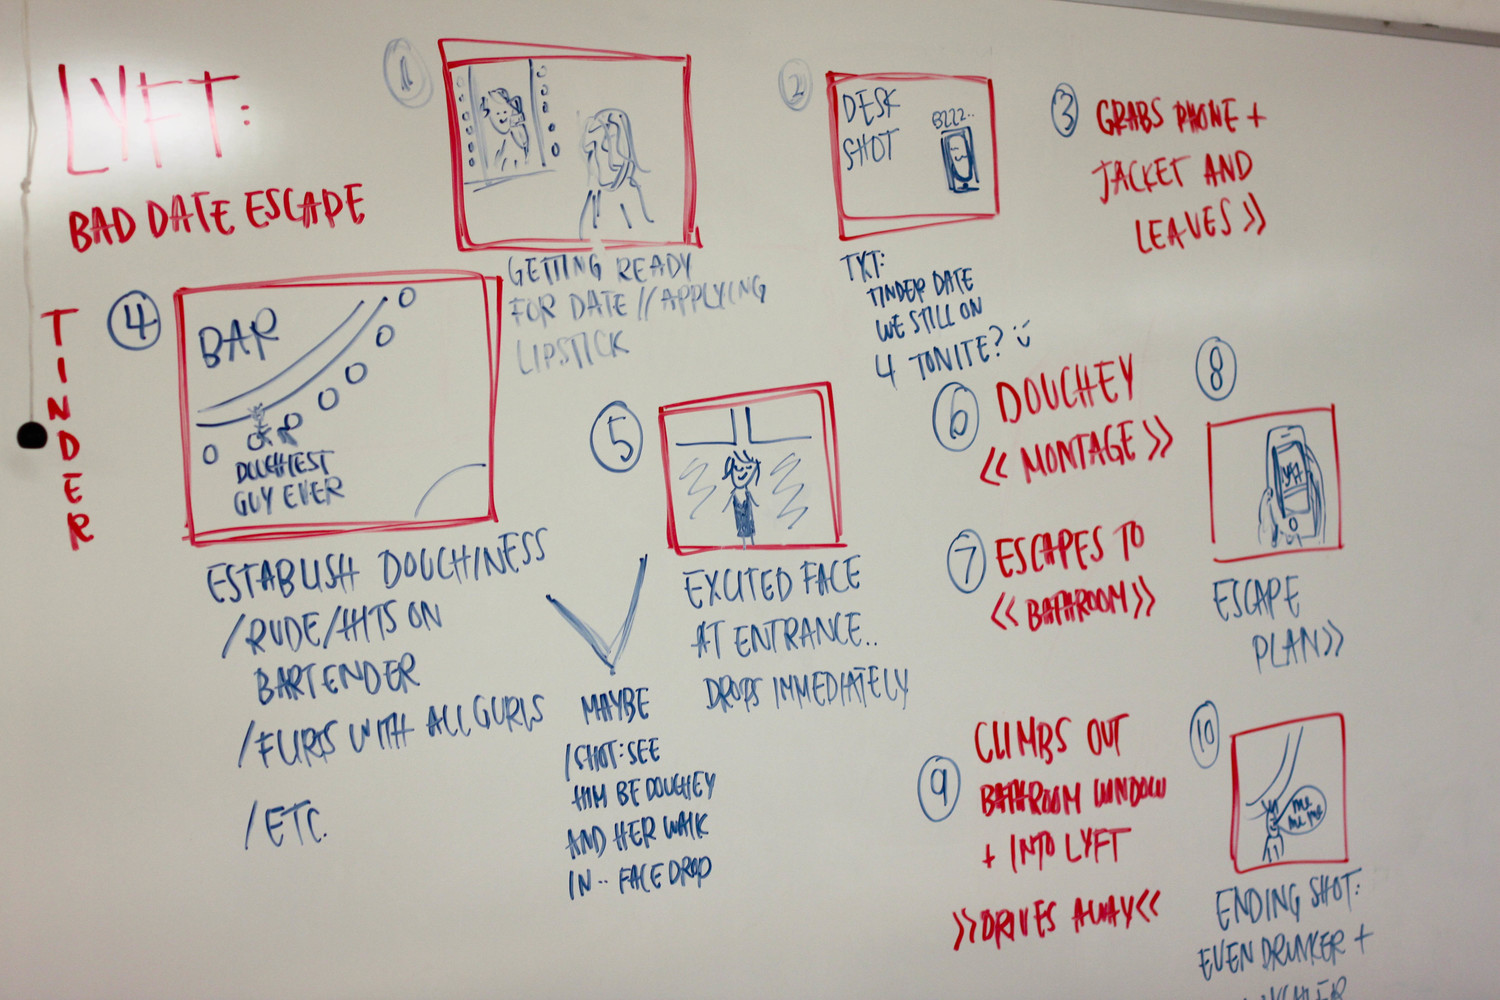 LYFT:
BAD DATE ESCAPE
TINDER
1
GETTING READY
FOR DATE // APPLYING
LIPSTICK
2
DESK
SHOT
BZZZ..
TXT:
TINDER DATE
WE STILL ON
4 TONITE? :)
3
GRABS PHONE +
JACKET AND
LEAVES >>
4
BAR
DOUCHIEST
GUY EVER
ESTABLISH DOUCHINESS
/RUDE/HITS ON
BARTENDER
/FLIRTS WITH ALL GURLS
/ETC.
5
EXCITED FACE
AT ENTRANCE..
DROPS IMMEDIATELY
MAYBE
/SHOT: SEE
HIM BE DOUCHEY
AND HER WALK
IN.. FACE DROP
6
DOUCHEY
<< MONTAGE >>
7
ESCAPES TO
<< BATHROOM >>
8
LYFT
ESCAPE
PLAN >>
9
CLIMBS OUT
BATHROOM WINDOW
+ INTO LYFT
>> DRIVES AWAY <<
10
ME
ME ME
ENDING SHOT:
EVEN DRUNKER +